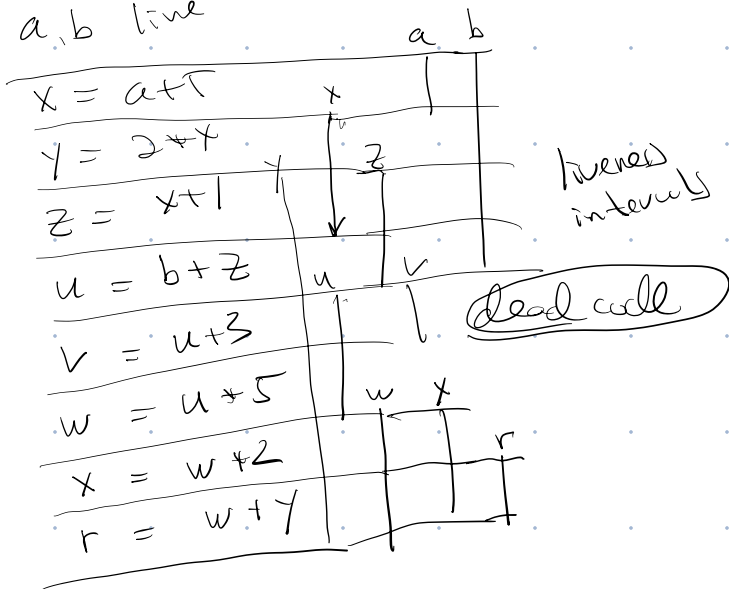 a, b line
a b
x = a+5
x
y = 2*x
y z
z = x+1
liveness
intervals
u = b+z
u v
dead code
v = u+3
w = u*5
w x
x = w+2
r
r = w+y